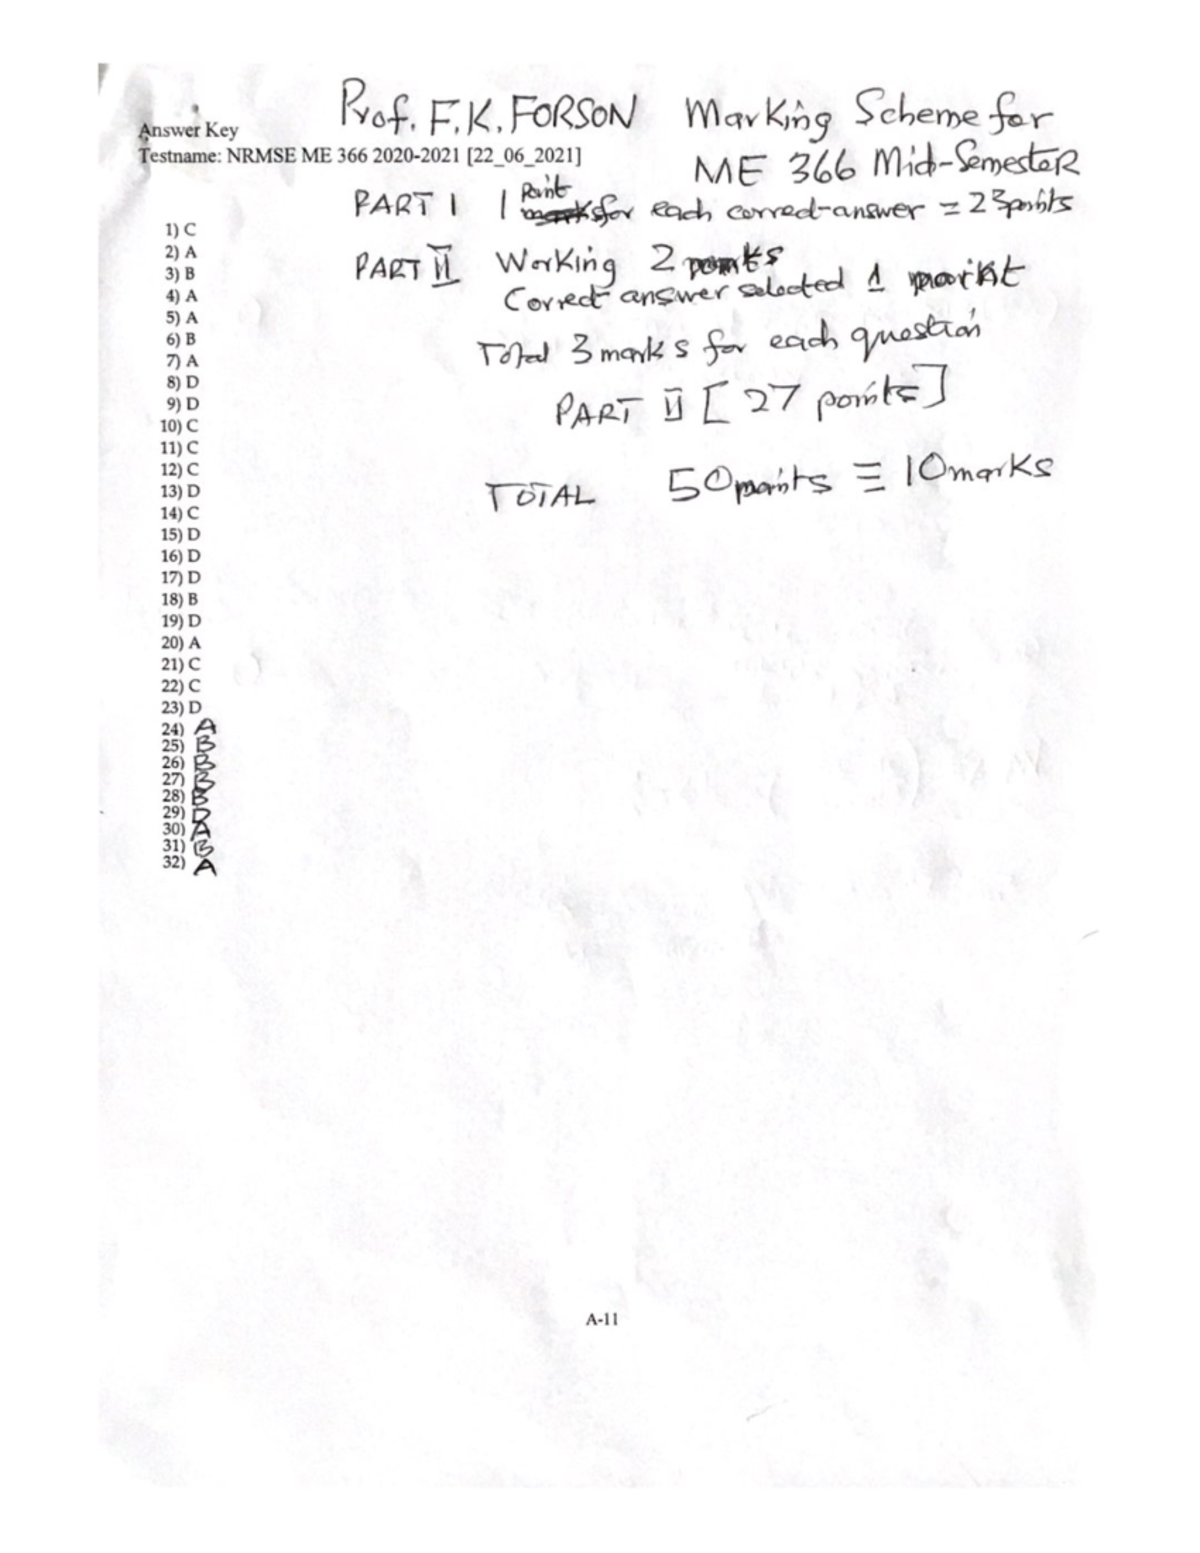 Prof. F.K. FORSON Marking Scheme for
Answer Key
Testname: NRMSE ME 366 2020-2021 [22_06_2021]
ME 366 Mid-Semester
PART I 1 point for each correct answer = 23points
PART II Working 2
Correct answer selected 1
Total 3 marks for each question
PART II [27 points]
TOTAL 50points ≡ 10marks
1) C
2) A
3) B
4) A
5) A
6) B
7) A
8) D
9) D
10) C
11) C
12) C
13) D
14) C
15) D
16) D
17) D
18) B
19) D
20) A
21) C
22) C
23) D
24) A
25) B
26) B
27) B
28) B
29) D
30) A
31) B
32) A
A-11